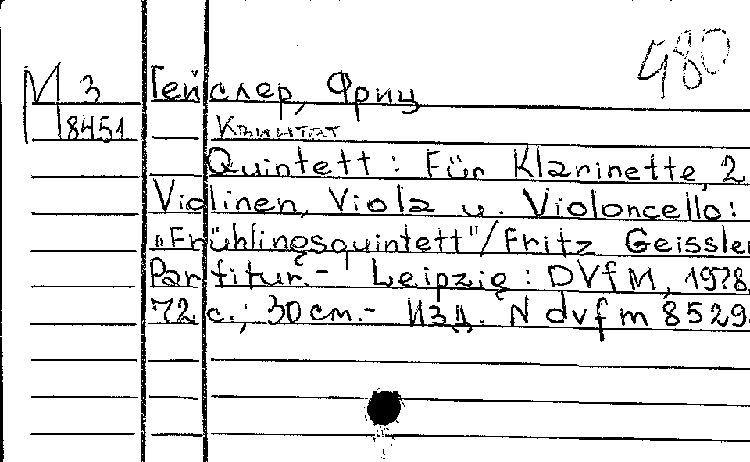 480
М 3 Гейслер, Фриц
8451 Квинтет
Quintett : Für Klarinette, 2
Violinen, Viola u. Violoncello:
„Frühlingsquintett"/Fritz Geissler
Partitur.- Leipzig : DVfM, 1978
72 с.; 30 см.- Изд. N dvfm 8529